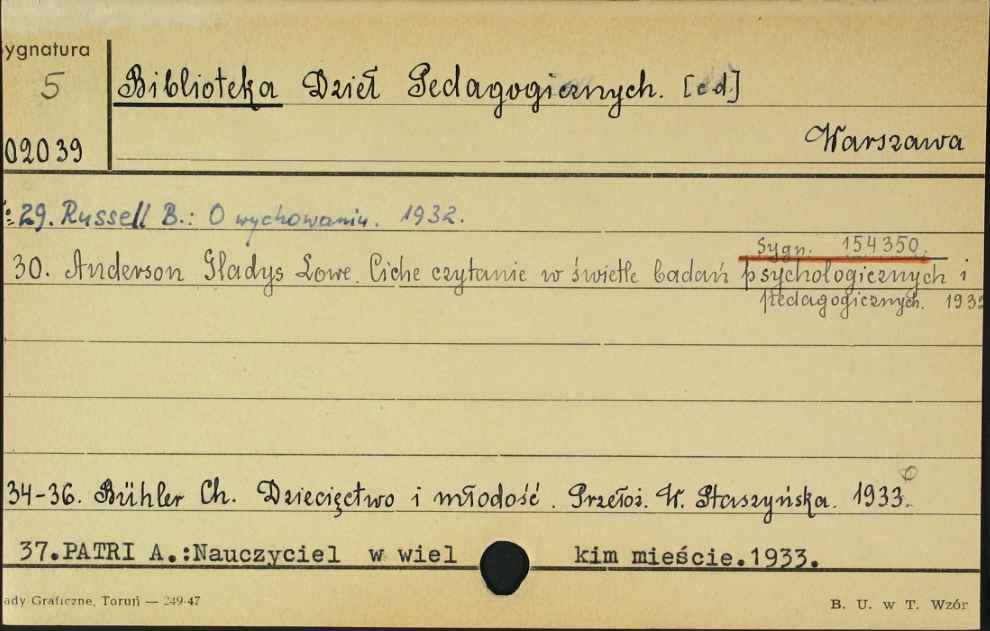 ygnatura
5
Biblioteka Dzieł Pedagogicznych. [cd]
02039
Warszawa
29. Russell B.: O wychowaniu. 1932.
Sygn. 154350.
30. Anderson Gladys Lowe. Ciche czytanie w świetle badań psychologicznych i
pedagogicznych. 193
34-36. Bühler Ch. Dziecięctwo i młodość. Przełoż. W. Ptaszyńska. 1933.
37.PATRI A.:Nauczyciel w wiel kim mieście.1933.
ady Graficzne, Toruń — 249-47
B. U. w T. Wzór